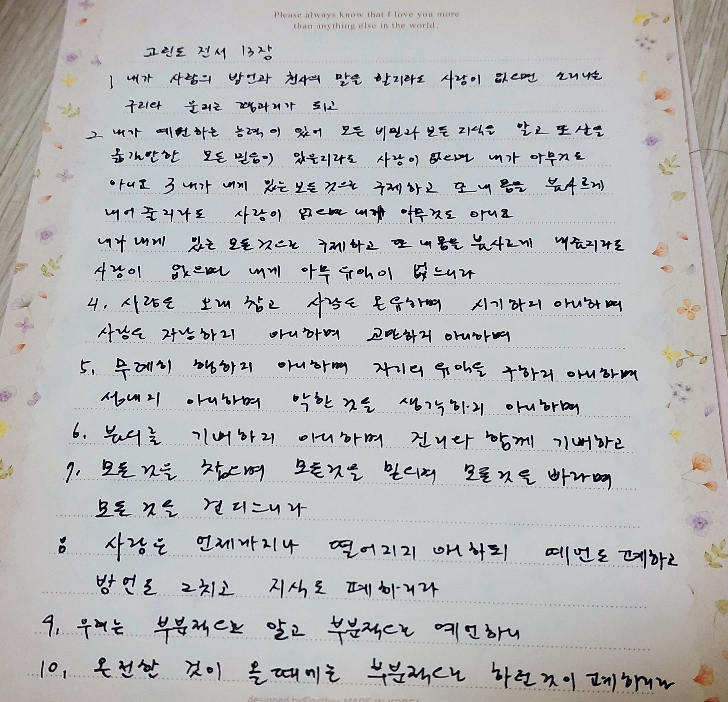 Please always know that I love you more
than anything else in the world.
고린도 전서 13장
1 내가 사람의 방언과 천사의 말을 할지라도 사랑이 없으면 소리나는
구리와 울리는 꽹과리가 되고
2. 내가 예언하는 능력이 있어 모든 비밀과 모든 지식을 알고 또 산을
옮길만한 모든 믿음이 있을지라도 사랑이 없으면 내가 아무것도
아니요 3 내가 내게 있는 모든 것으로 구제하고 또 내 몸을 불사르게
내어 줄지라도 사랑이 없으면 내게 아무것도 아니요
내가 내게 있는 모든 것으로 구제하고 또 내 몸을 불사르게 내줄지라도
사랑이 없으면 내게 아무 유익이 없느니라
4. 사랑은 오래 참고 사랑은 온유하며 시기하지 아니하며
사랑은 자랑하지 아니하며 교만하지 아니하며
5. 무례히 행하지 아니하며 자기의 유익을 구하지 아니하며
성내지 아니하며 악한 것을 생각하지 아니하며
6. 불의를 기뻐하지 아니하며 진리와 함께 기뻐하고
7. 모든 것을 참으며 모든것을 믿으며 모든 것을 바라며
모든 것을 견디느니라
8 사랑은 언제까지나 떨어지지 아니하되 예언도 폐하고
방언도 그치고 지식도 폐하리라
9. 우리는 부분적으로 알고 부분적으로 예언하니
10. 온전한 것이 올 때에는 부분적으로 하던 것이 폐하리라